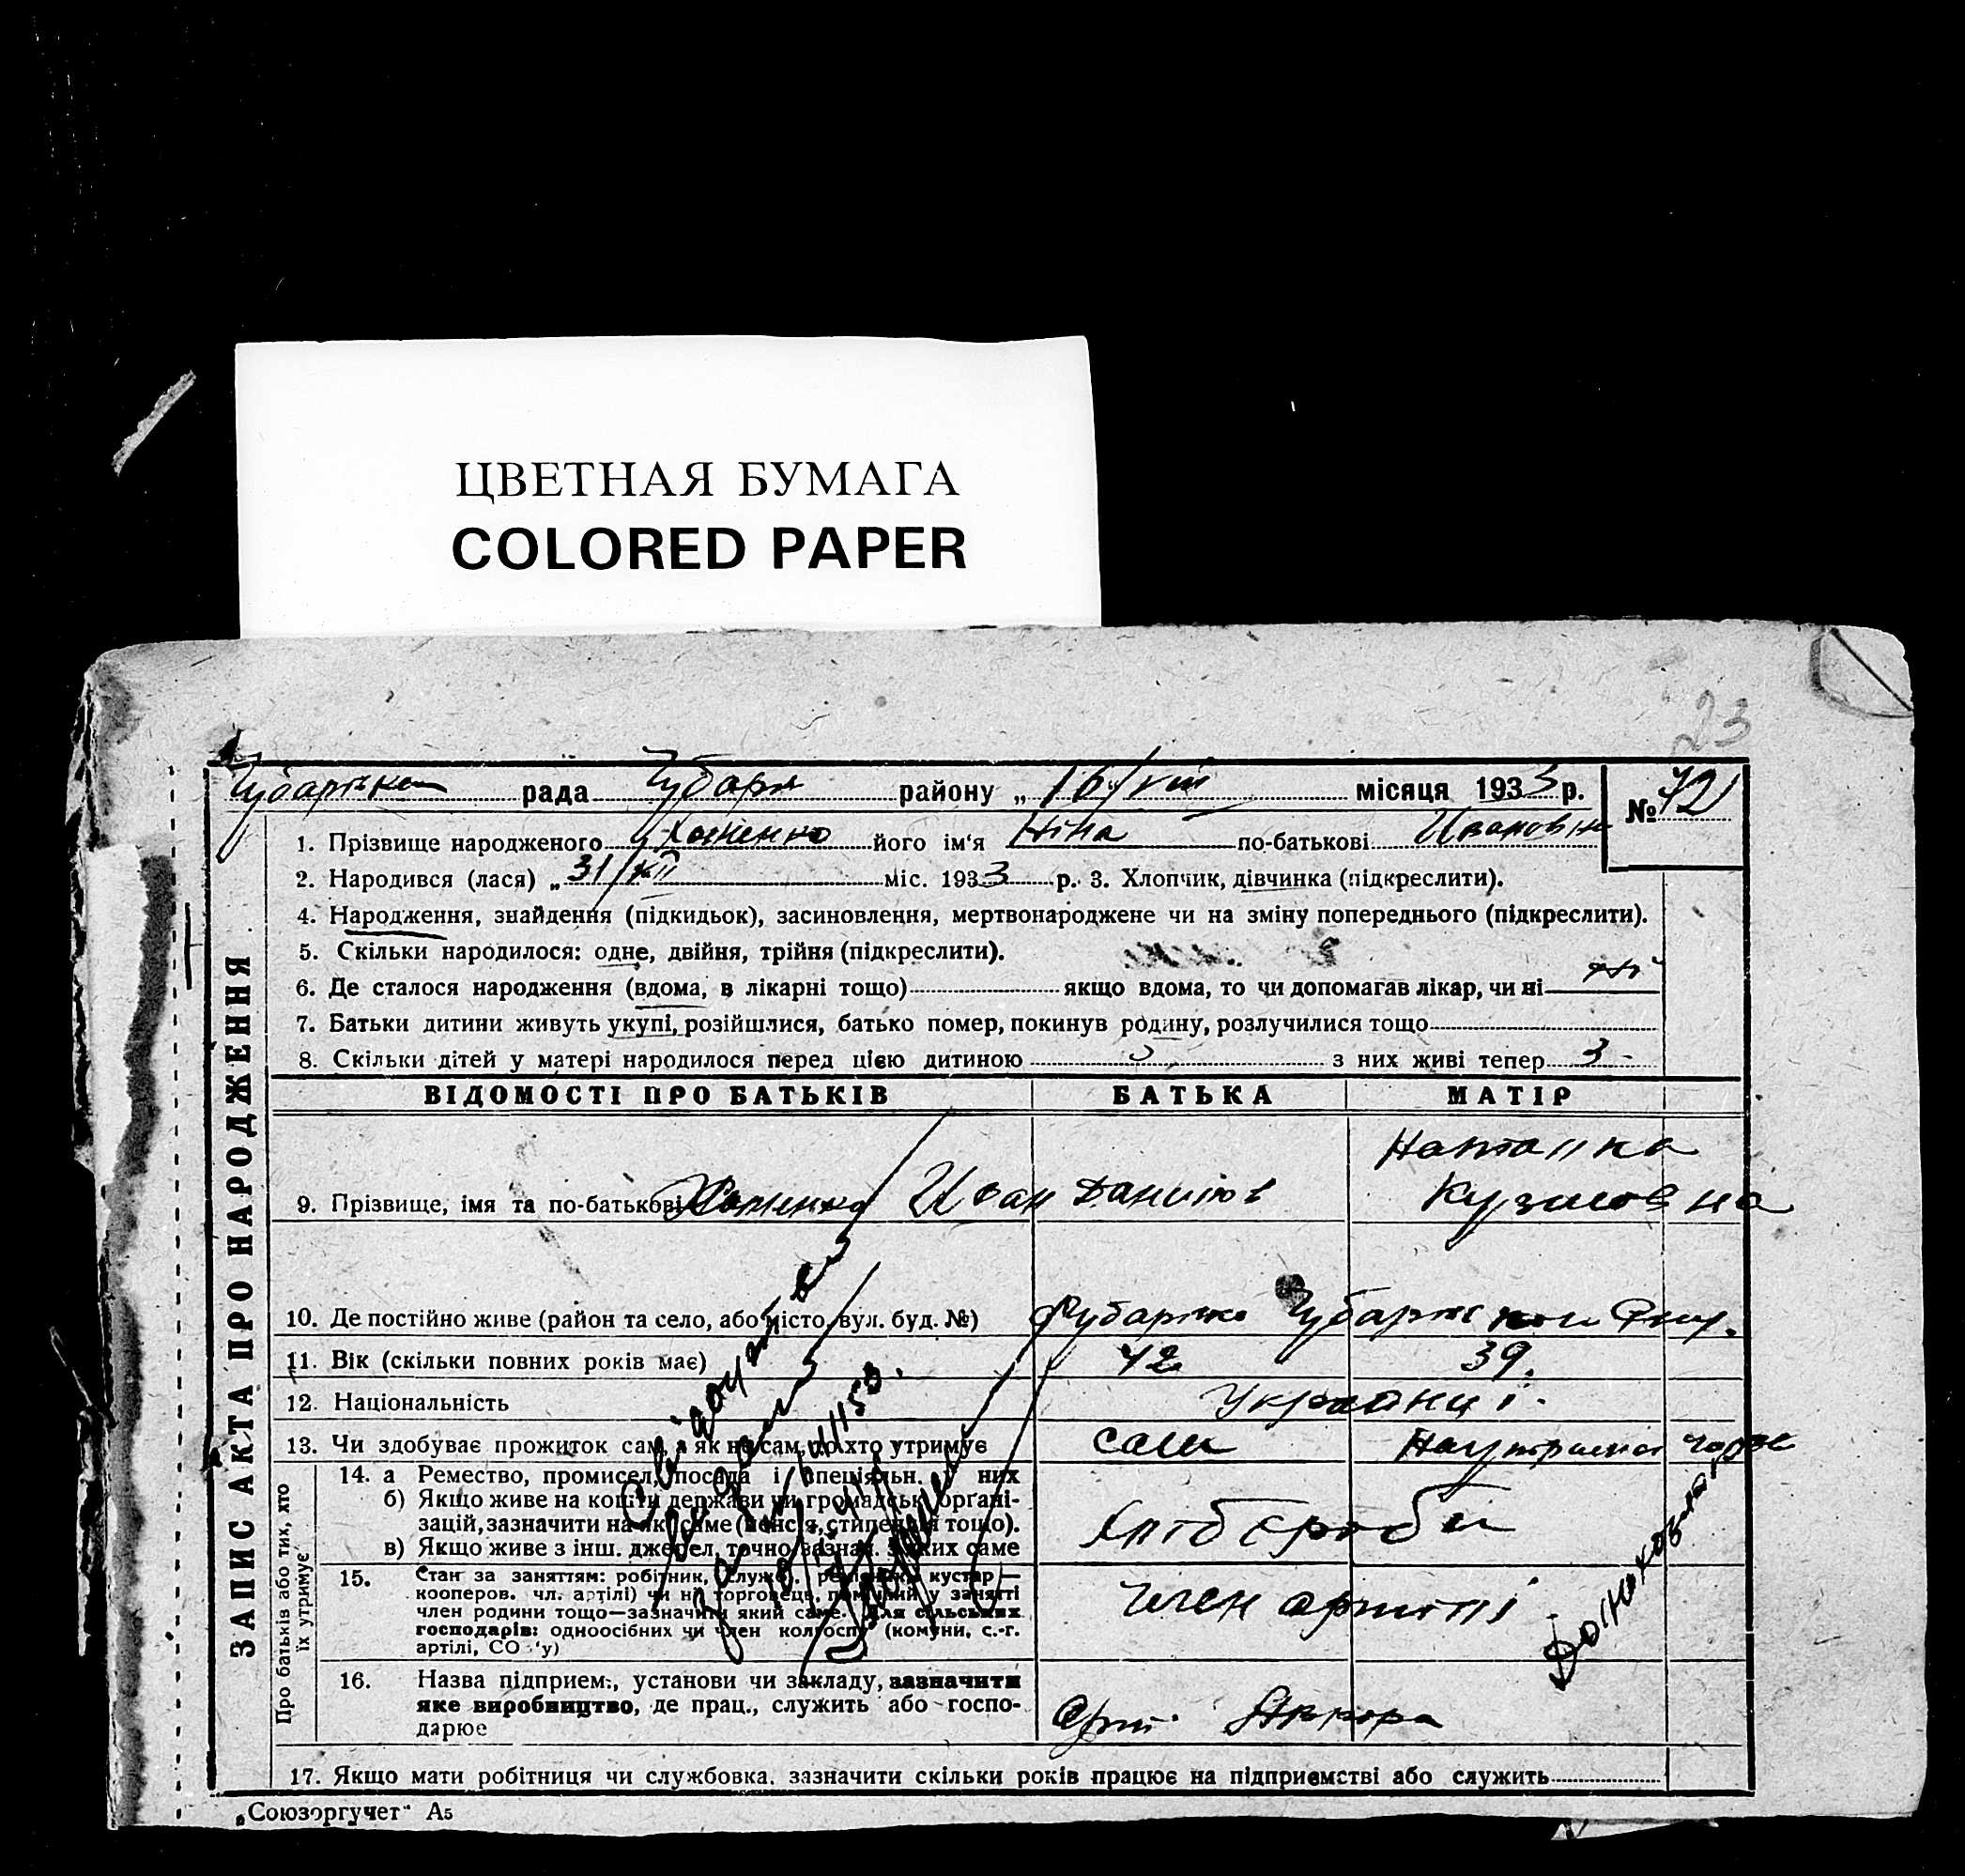 ЦВЕТНАЯ БУМАГА
COLORED PAPER
23
рада Чубаря району „ 16/VIII місяця 1933 р. №
1. Прізвище народженого його ім'я Ніна по-батькові Ивановна
2. Народився (лася) „ 31/VII міс. 1933 р. 3. Хлопчик, дівчинка (підкреслити).
4. Народження, знайдення (підкидьок), засиновлення, мертвонароджене чи на зміну попереднього (підкреслити).
5. Скільки народилося: одне, двійня, трійня (підкреслити).
6. Де сталося народження (вдома, в лікарні тощо) якщо вдома, то чи допомагав лікар, чи ні ні
7. Батьки дитини живуть укупі, розійшлися, батько помер, покинув родину, розлучилися тощо
8. Скільки дітей у матері народилося перед цією дитиною 3 з них живі тепер 3
ЗАПИС АКТА ПРО НАРОДЖЕННЯ
ВІДОМОСТІ ПРО БАТЬКІВ БАТЬКА МАТІР
9. Прізвище, імя та по-батькові Иван Данилов
Кузмовна
10. Де постійно живе (район та село, або місто, вул. буд. №)
11. Вік (скільки повних років має) 42 39.
12. Національність Українці.
13. Чи здобуває прожиток сам, а як не сам, то хто утримує сам
Про батьків або тих, хто їх утримує
14. а Ремество, промисел, посада і спеціяльн. у них
б) Якщо живе на кошти держави чи громадськ. органі-
зацій, зазначити на які саме (пенсія, стипендія тощо).
в) Якщо живе з інш. джерел, точно зазнач. з яких саме
Хлібороби
15. Стан за заняттям: робітник, службов. кустар—
кооперов. чл. артілі) чи ні, торговець, помічний у занятті
член родини тощо—зазначити який саме. Для сільських
господарів: одноосібних чи член колгоспу (комуни, с.-г.
артілі, СО 'у)
член артілі
16. Назва підприєм., установи чи закладу, зазначити
яке виробництво, де прац., служить або госпо-
дарює
17. Якщо мати робітниця чи службовка, зазначити скільки років працює на підприємстві або служить
„Союзоргучет“ А5